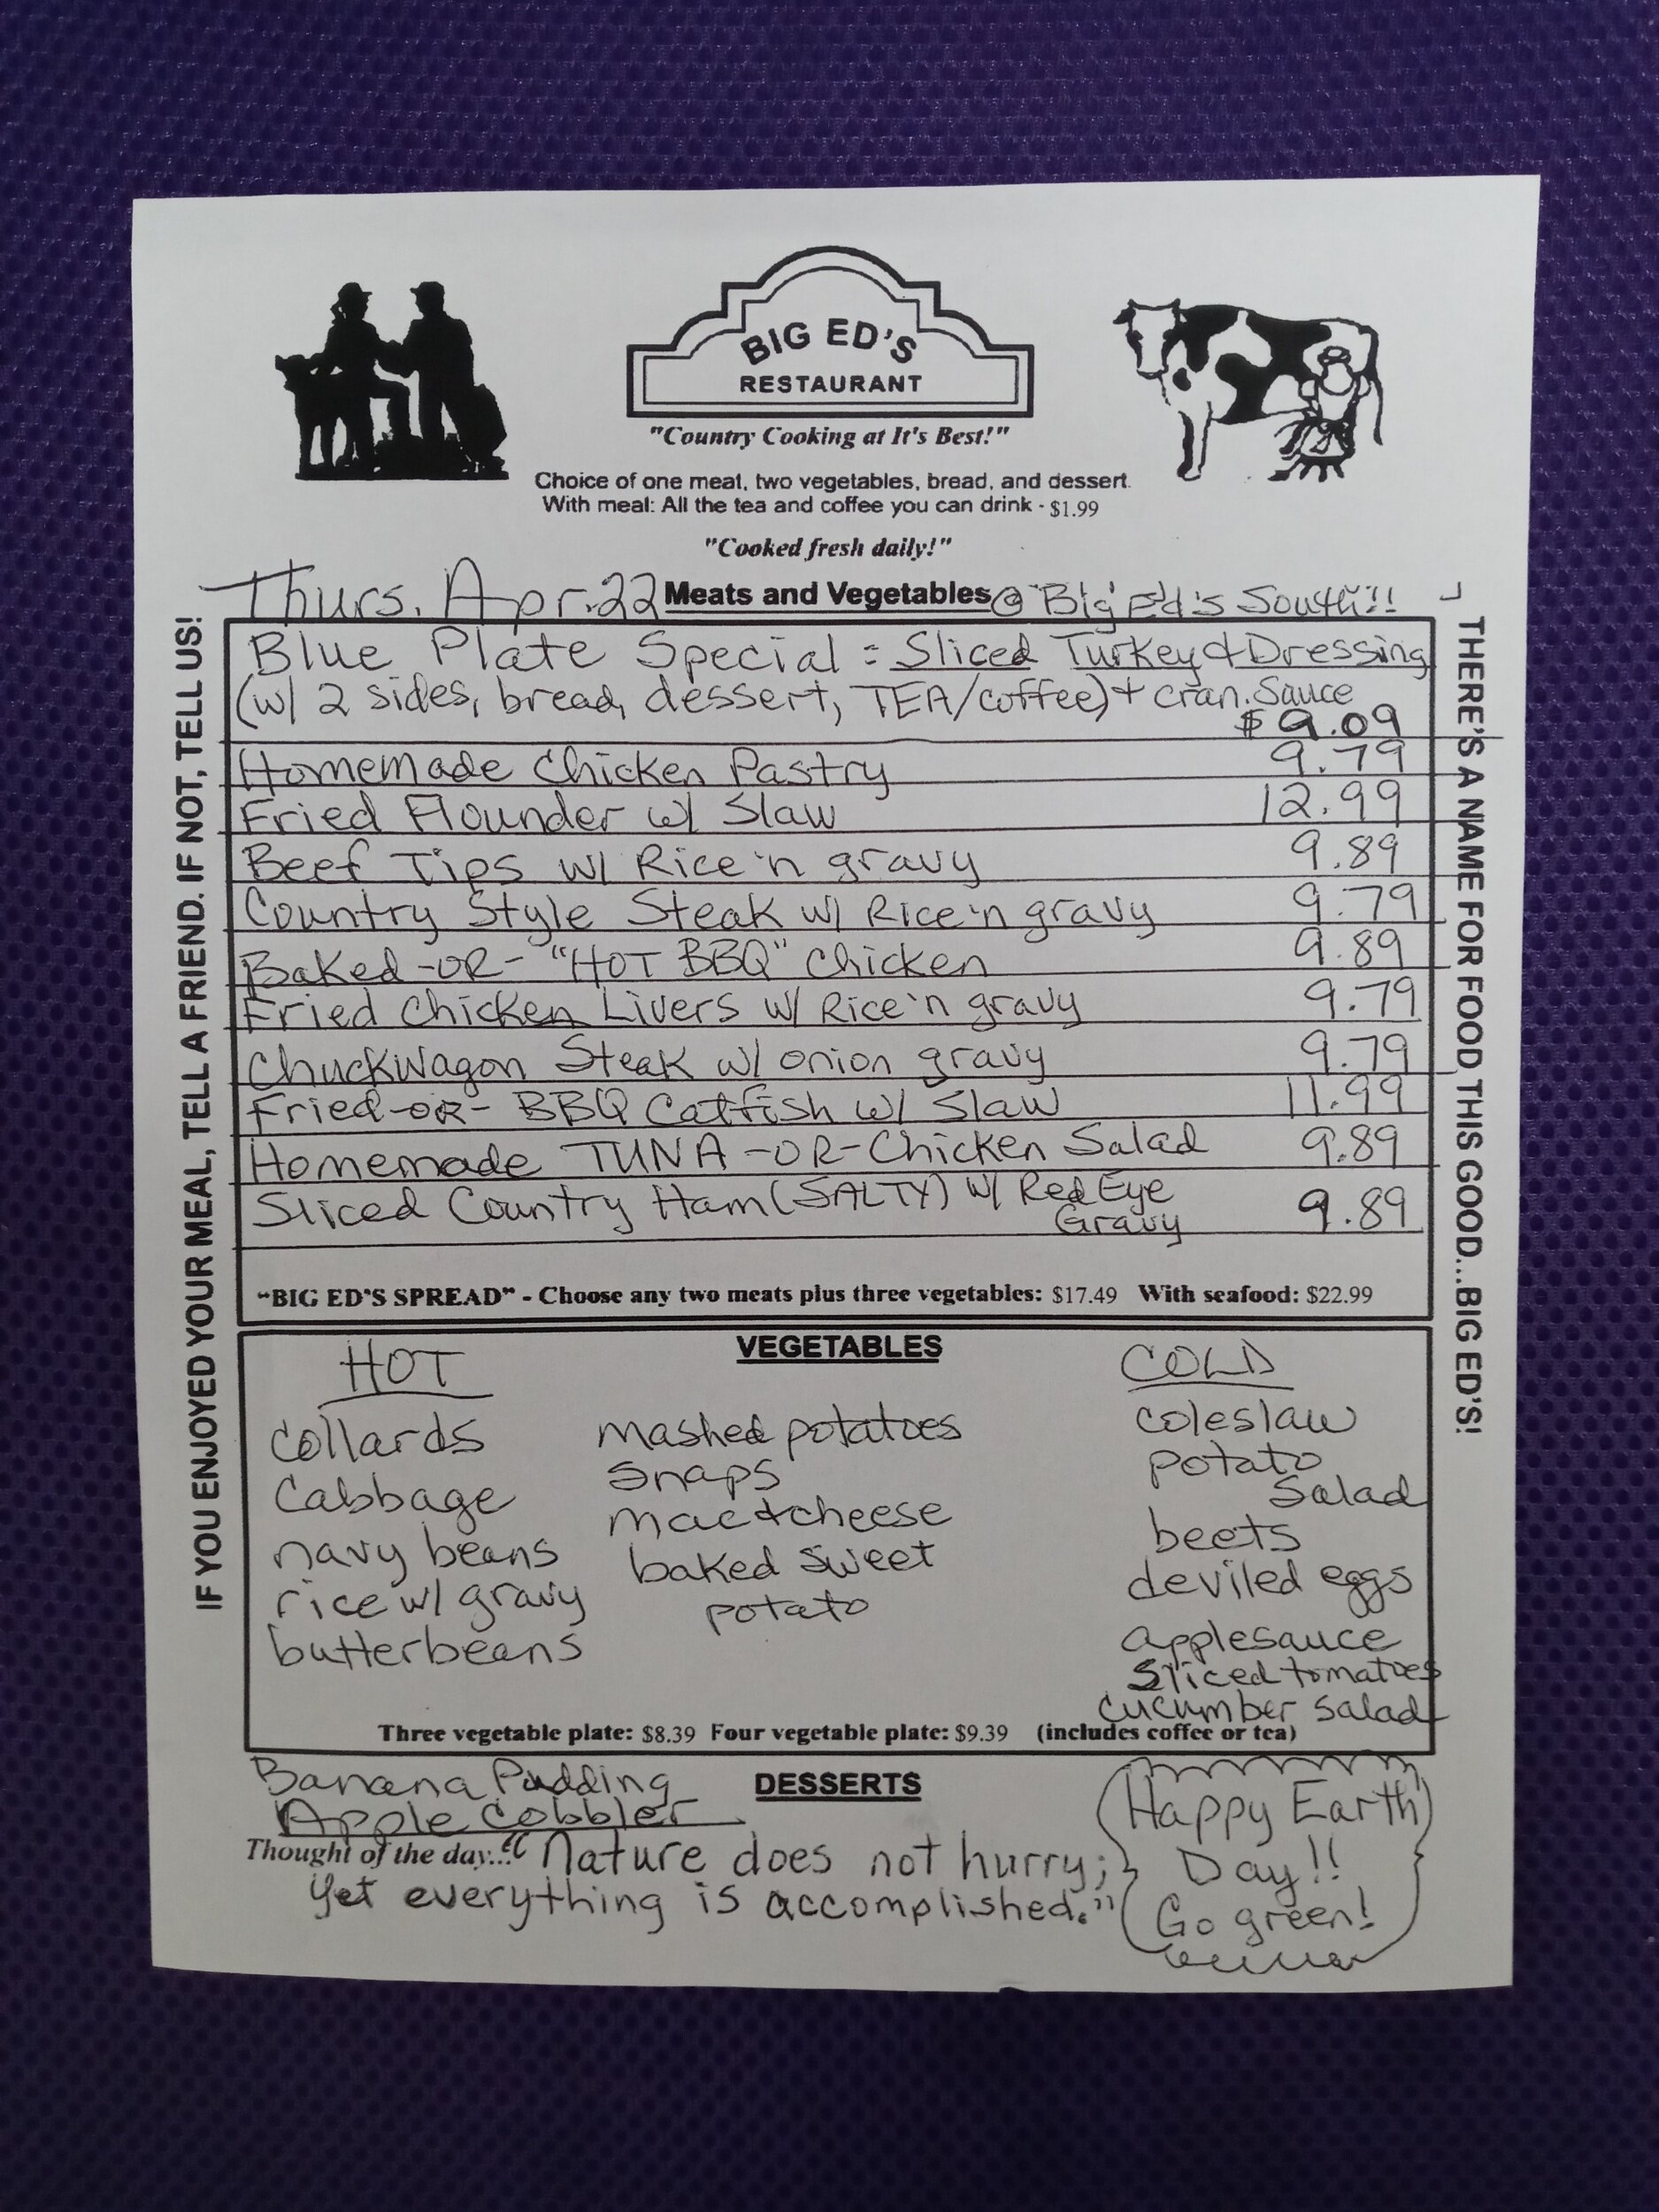 BIG ED'S
RESTAURANT
"Country Cooking at It's Best!"
Choice of one meat, two vegetables, bread, and dessert.
With meal: All the tea and coffee you can drink - $1.99
"Cooked fresh daily!"
Thurs. Apr. 22 Meats and Vegetables @ Big Ed's South!!
IF YOU ENJOYED YOUR MEAL, TELL A FRIEND. IF NOT, TELL US!
Blue Plate Special = Sliced Turkey & Dressing
(w/ 2 sides, bread, dessert, TEA/coffee) + cran. Sauce
$9.09
Homemade Chicken Pastry 9.79
Fried Flounder w/ Slaw 12.99
Beef Tips w/ Rice 'n gravy 9.89
Country Style Steak w/ Rice 'n gravy 9.79
Baked -OR- "HOT BBQ" chicken 9.89
Fried Chicken Livers w/ Rice 'n gravy 9.79
Chuckwagon Steak w/ onion gravy 9.79
Fried -OR- BBQ Catfish w/ Slaw 11.99
Homemade TUNA -OR- Chicken Salad 9.89
Sliced Country Ham (SALTY) w/ Red Eye
Gravy 9.89
"BIG ED'S SPREAD" - Choose any two meats plus three vegetables: $17.49 With seafood: $22.99
THERE'S A NAME FOR FOOD THIS GOOD...BIG ED'S!
VEGETABLES
HOT
collards
Cabbage
navy beans
rice w/ gravy
butterbeans
mashed potatoes
snaps
mac & cheese
baked sweet
potato
COLD
coleslaw
potato
salad
beets
deviled eggs
applesauce
sliced tomatoes
cucumber salad
Three vegetable plate: $8.39 Four vegetable plate: $9.39 (includes coffee or tea)
DESSERTS
Banana Pudding
Apple Cobbler
Thought of the day... "Nature does not hurry;
yet everything is accomplished."
Happy Earth
Day!!
Go green!